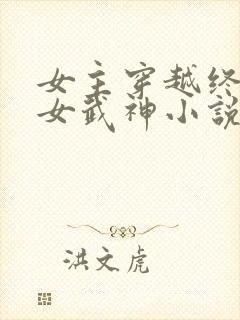 女主穿越终
女武神小説
洪文虎